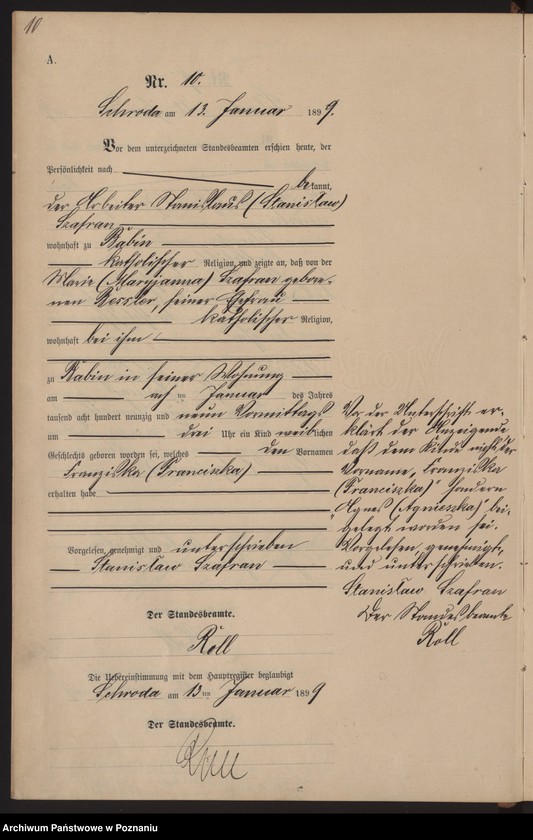 10
A.
Nr. 10.
Schroda am 13. Januar 1899.
Vor dem unterzeichneten Standesbeamten erschien heute, der
Persönlichkeit nach bekannt,
der Arbeiter Stanislaus (Stanisław)
Szafran
wohnhaft zu Babin
katholischer Religion, und zeigte an, daß von der
Marie (Maryjanna) Szafran gebore-
nen, seiner Ehefrau
katholischer Religion,
wohnhaft bei ihm
zu Babin in seiner Wohnung
am ten Januar des Jahres
tausend acht hundert neunzig und neun Vormittags
um drei Uhr ein Kind weiblichen
Geschlechts geboren worden sei, welches den Vornamen
Franziska (Franciszka)
erhalten habe
Vorgelesen, genehmigt und unterschrieben
Stanisław Szafran
Der Standesbeamte.
Roll
Die Uebereinstimmung mit dem Hauptregister beglaubigt
Schroda am 13ten Januar 1899
Der Standesbeamte.
Roll
Vor der Unterschrift er-
klärt der Anzeigende
daß dem Kinde nicht der
Vorname, Franziska
(Franciszka)" sondern
"Agnes (Agnieszka)" bei-
gelegt worden, sei.
Vorgelesen, genehmigt,
und unterschrieben.
Stanisław Szafran
Der Standesbeamte
Roll
Archiwum Państwowe w Poznaniu